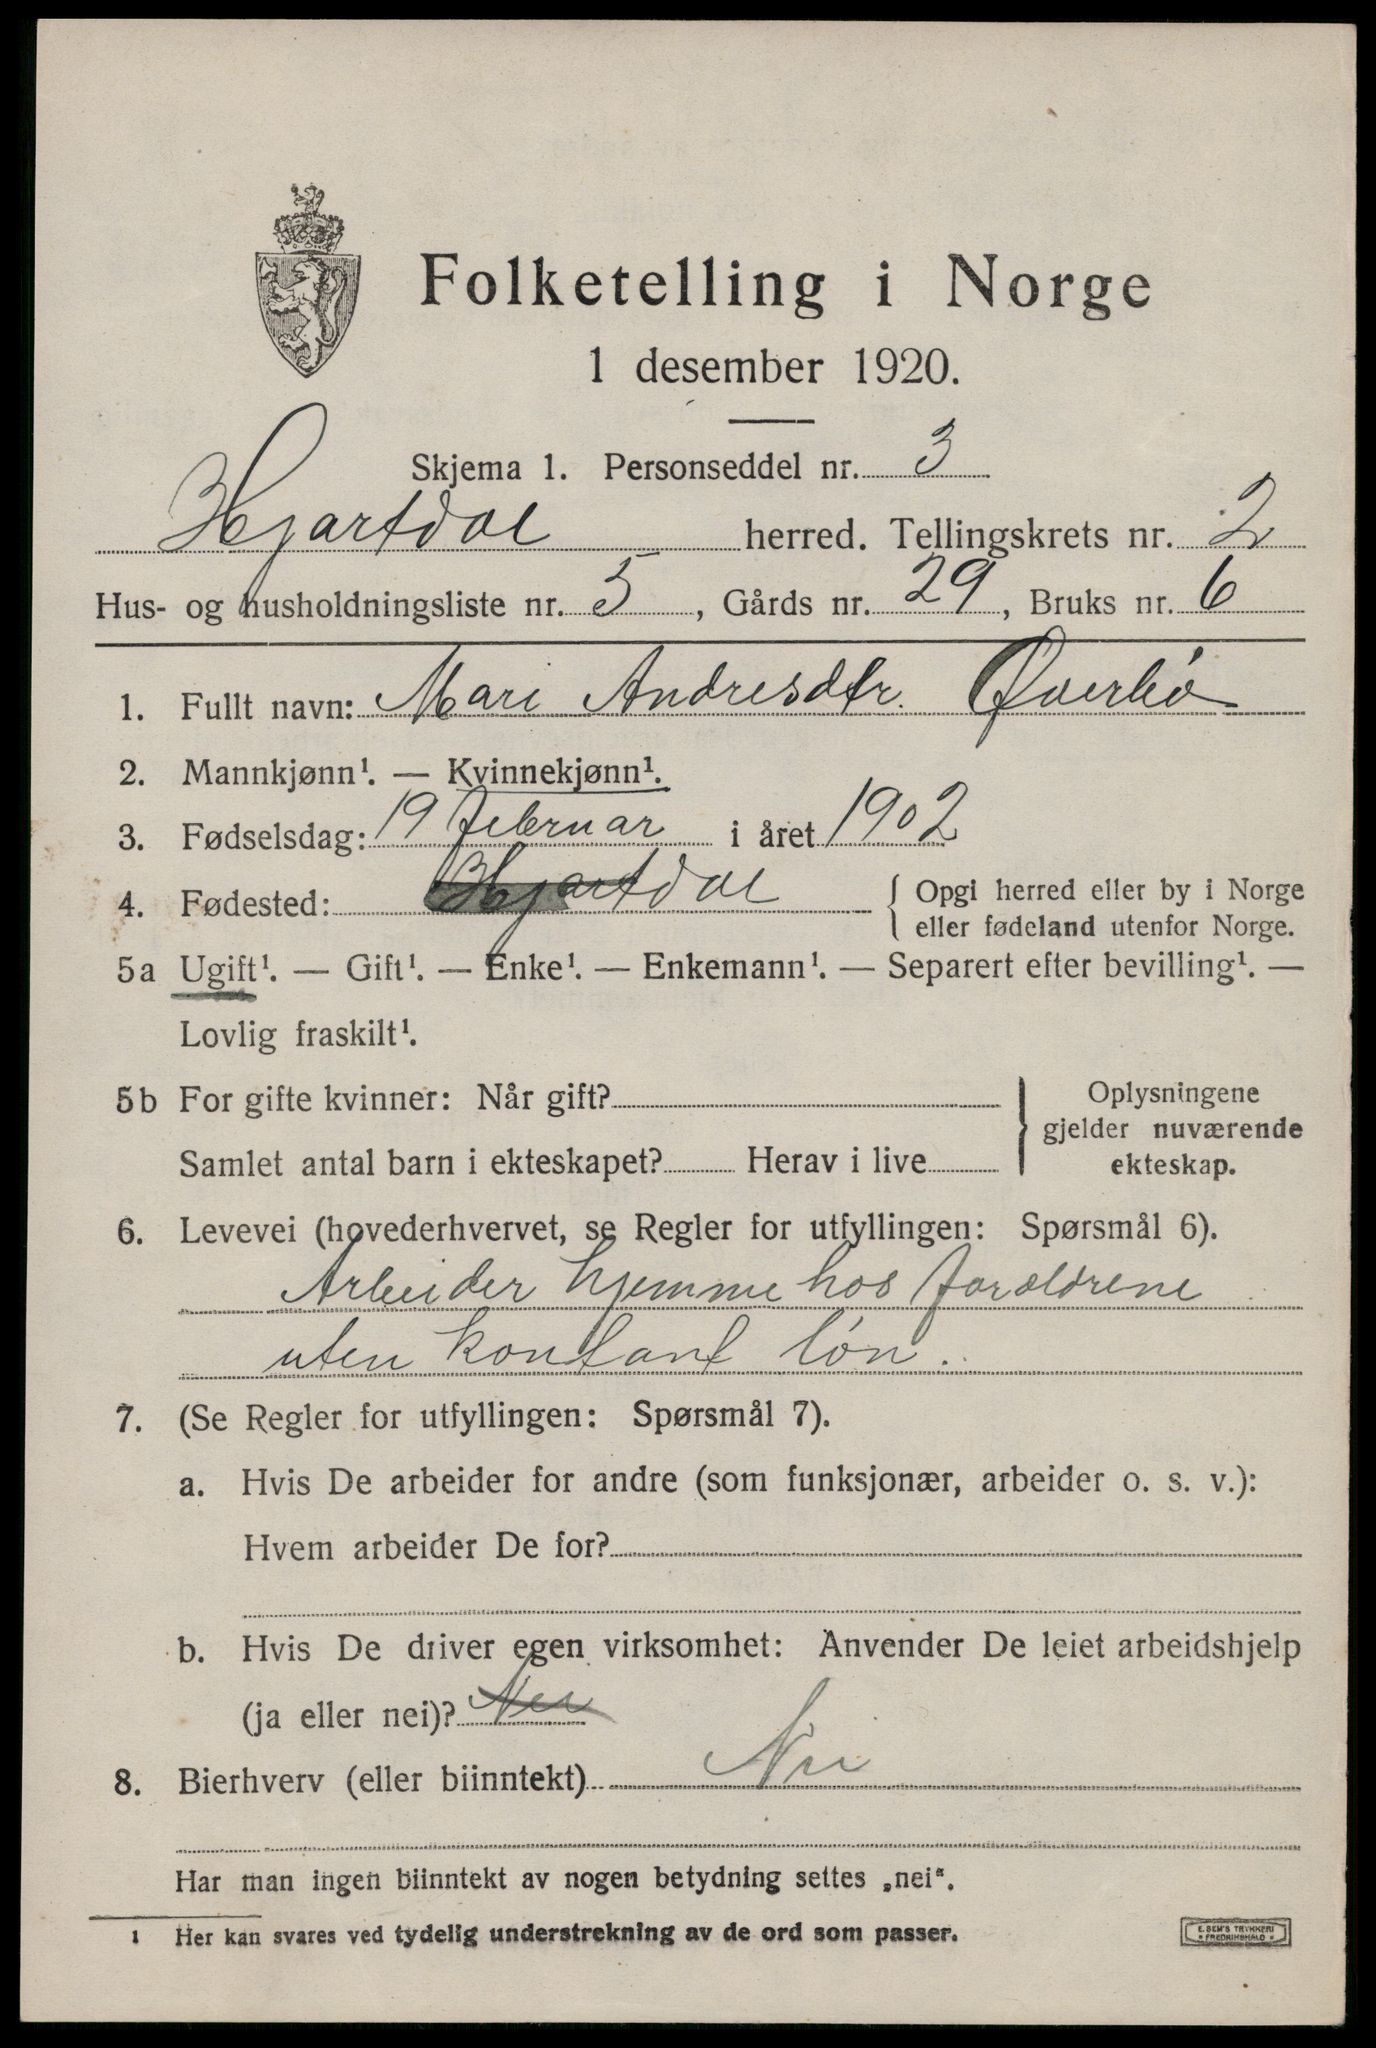 Folketelling i Norge
1 desember 1920.
Skjema 1. Personseddel nr. 3
Hjartdal herred. Tellingskrets nr. 2
Hus- og husholdningsliste nr. 5, Gårds nr. 29, Bruks nr. 6
1. Fullt navn: Mari Andresdtr. Øverbø
2. Mannkjønn¹. — Kvinnekjønn¹.
3. Fødselsdag: 19 februar i året 1902
4. Fødested: Hjartdal { Opgi herred eller by i Norge
eller fødeland utenfor Norge.
5a Ugift¹. — Gift¹. — Enke¹. — Enkemann¹. — Separert efter bevilling¹. —
Lovlig fraskilt¹.
5b For gifte kvinner: Når gift? Oplysningene
gjelder nuværende
Samlet antal barn i ekteskapet? Herav i live ekteskap.
6. Levevei (hovederhvervet, se Regler for utfyllingen: Spørsmål 6).
Arbeider hjemme hos forældrene
uten kontant løn.
7. (Se Regler for utfyllingen: Spørsmål 7).
a. Hvis De arbeider for andre (som funksjonær, arbeider o. s. v.):
Hvem arbeider De for?
b. Hvis De driver egen virksomhet: Anvender De leiet arbeidshjelp
(ja eller nei)? Nei
8. Bierhverv (eller biinntekt) Nei
Har man ingen biinntekt av nogen betydning settes „nei“.
1 Her kan svares ved tydelig understrekning av de ord som passer.
E. SEM'S TRYKKERI
* FREDRIKSHALD *